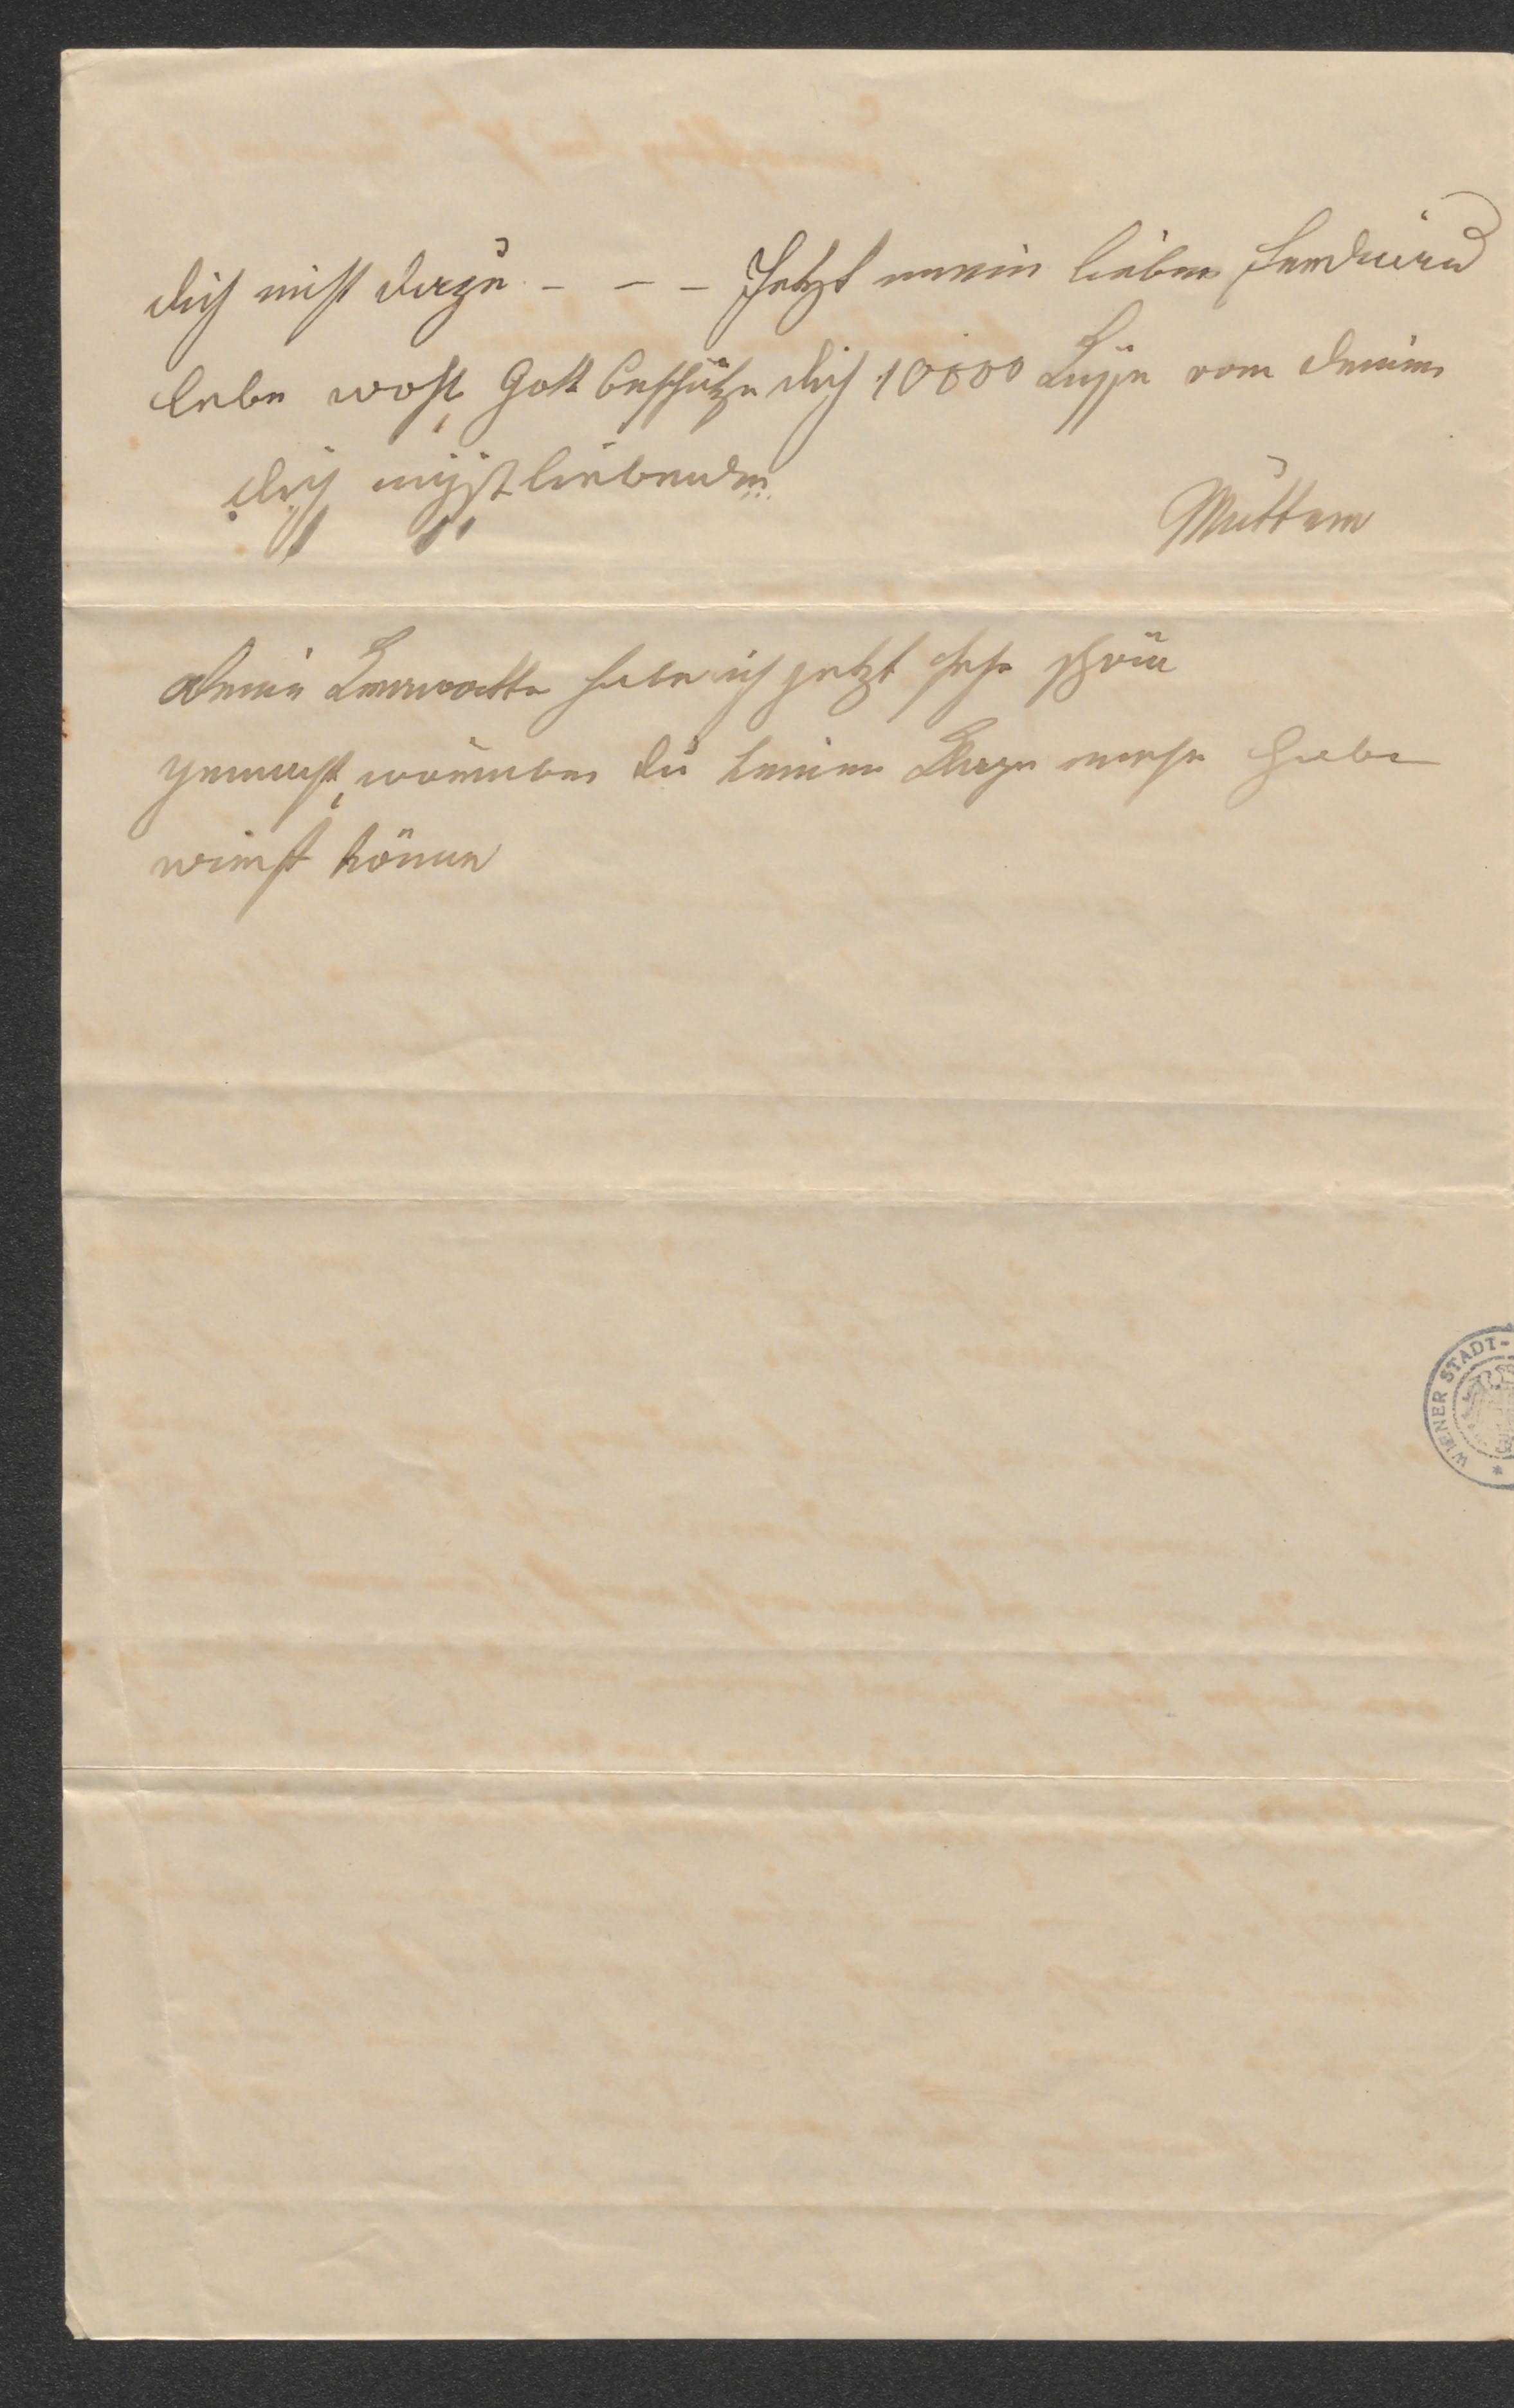 dich nicht dazu. – – – Jetzt mein lieber Ferdinand
lebe wohl, Gott beschütze dich 10000 Küsse von deiner
dich innigst liebenden
Mutter
deine Kravatte habe ich jetzt sehr schön
gemacht, worüber du keine Klage mehr habe
wirst können
WIENER STADT-